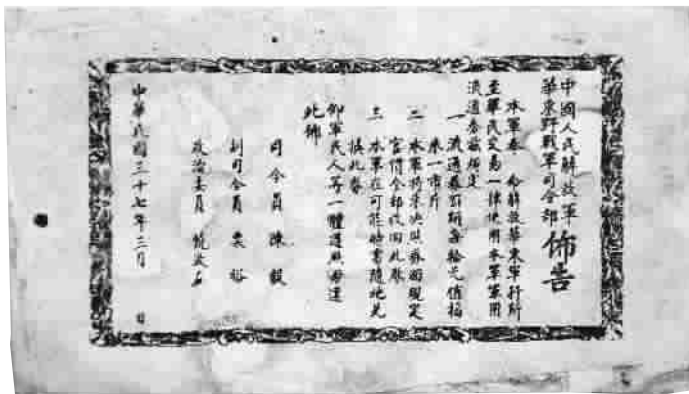 中國人民解放軍
華東野戰軍司令部
佈告
本軍奉 命解放華東軍行所
至軍民交易一律使用本軍軍用
流通券茲規定
一 流通券額每拾元值稻
米一市斤
二 本軍將來決照券面規定
官價全部收回此券
三 本軍在可能時當隨地兌
換此券
仰軍民人等一體遵照毋違
此佈
司令員 陳毅
副司令員 粟裕
政治委員 饒漱石
中華民國三十七年三月 日